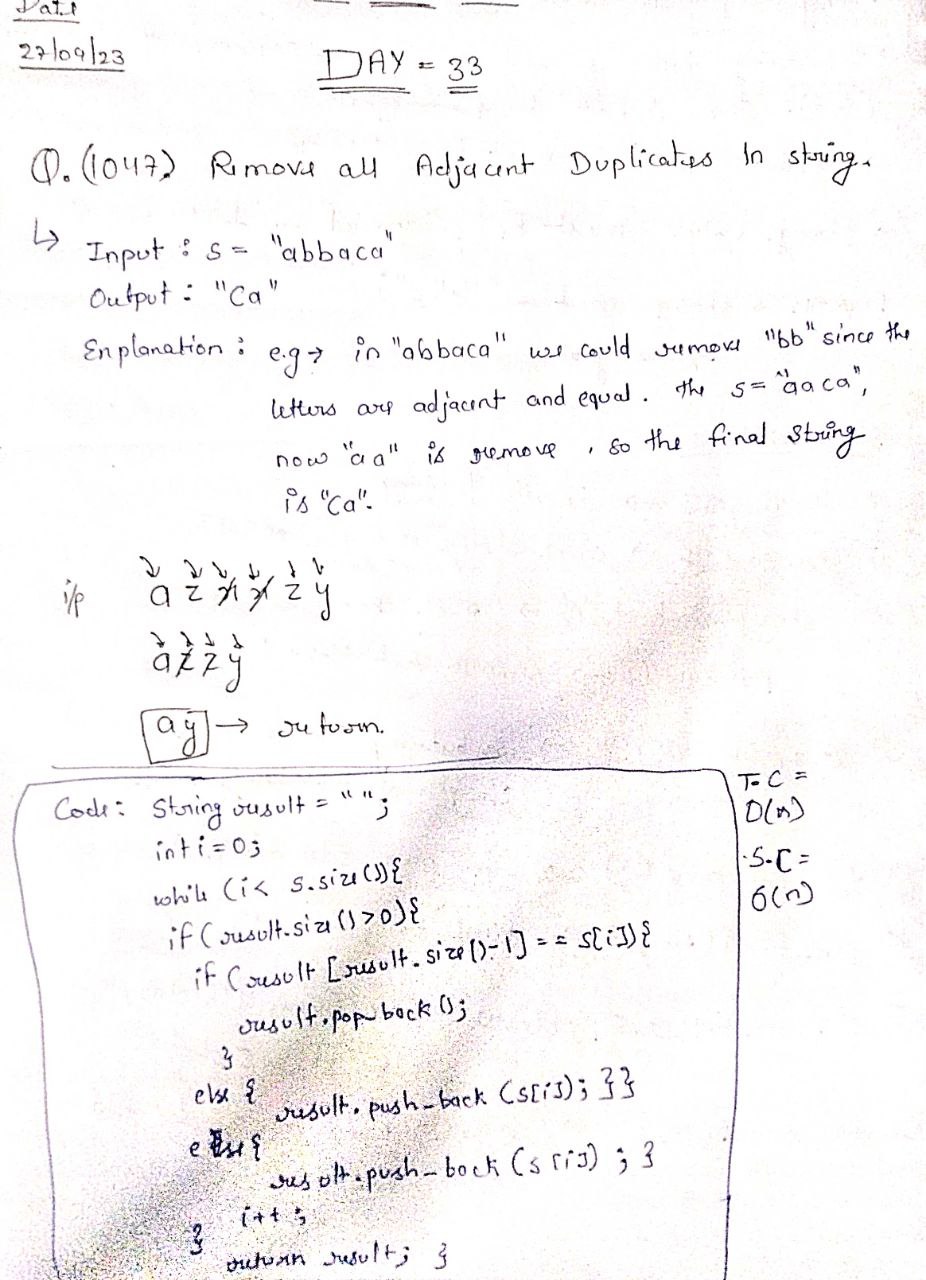 Date
27/09/23
DAY = 33
Q. (1047) Remove all Adjacent Duplicates In string.
↳ Input : s = "abbaca"
Output : "Ca"
Enplanation : e.g → in "abbaca" we could remove "bb" since the
letters are adjacent and equal. the s = "aaca",
now "aa" is remove, so the final string
is "Ca".
i/p a z x x z y
a z z y
ay → return.
Code: String result = " ";
int i = 0;
while (i < s.size()){
if (result.size() > 0){
if (result [result.size()-1] == s[i]){
result.pop_back();
}
else {
result.push_back (s[i]); }}
else {
result.push_back (s[i]) ; }
i++ ;
}
return result; }
T.C =
O(n)
S.C =
O(n)